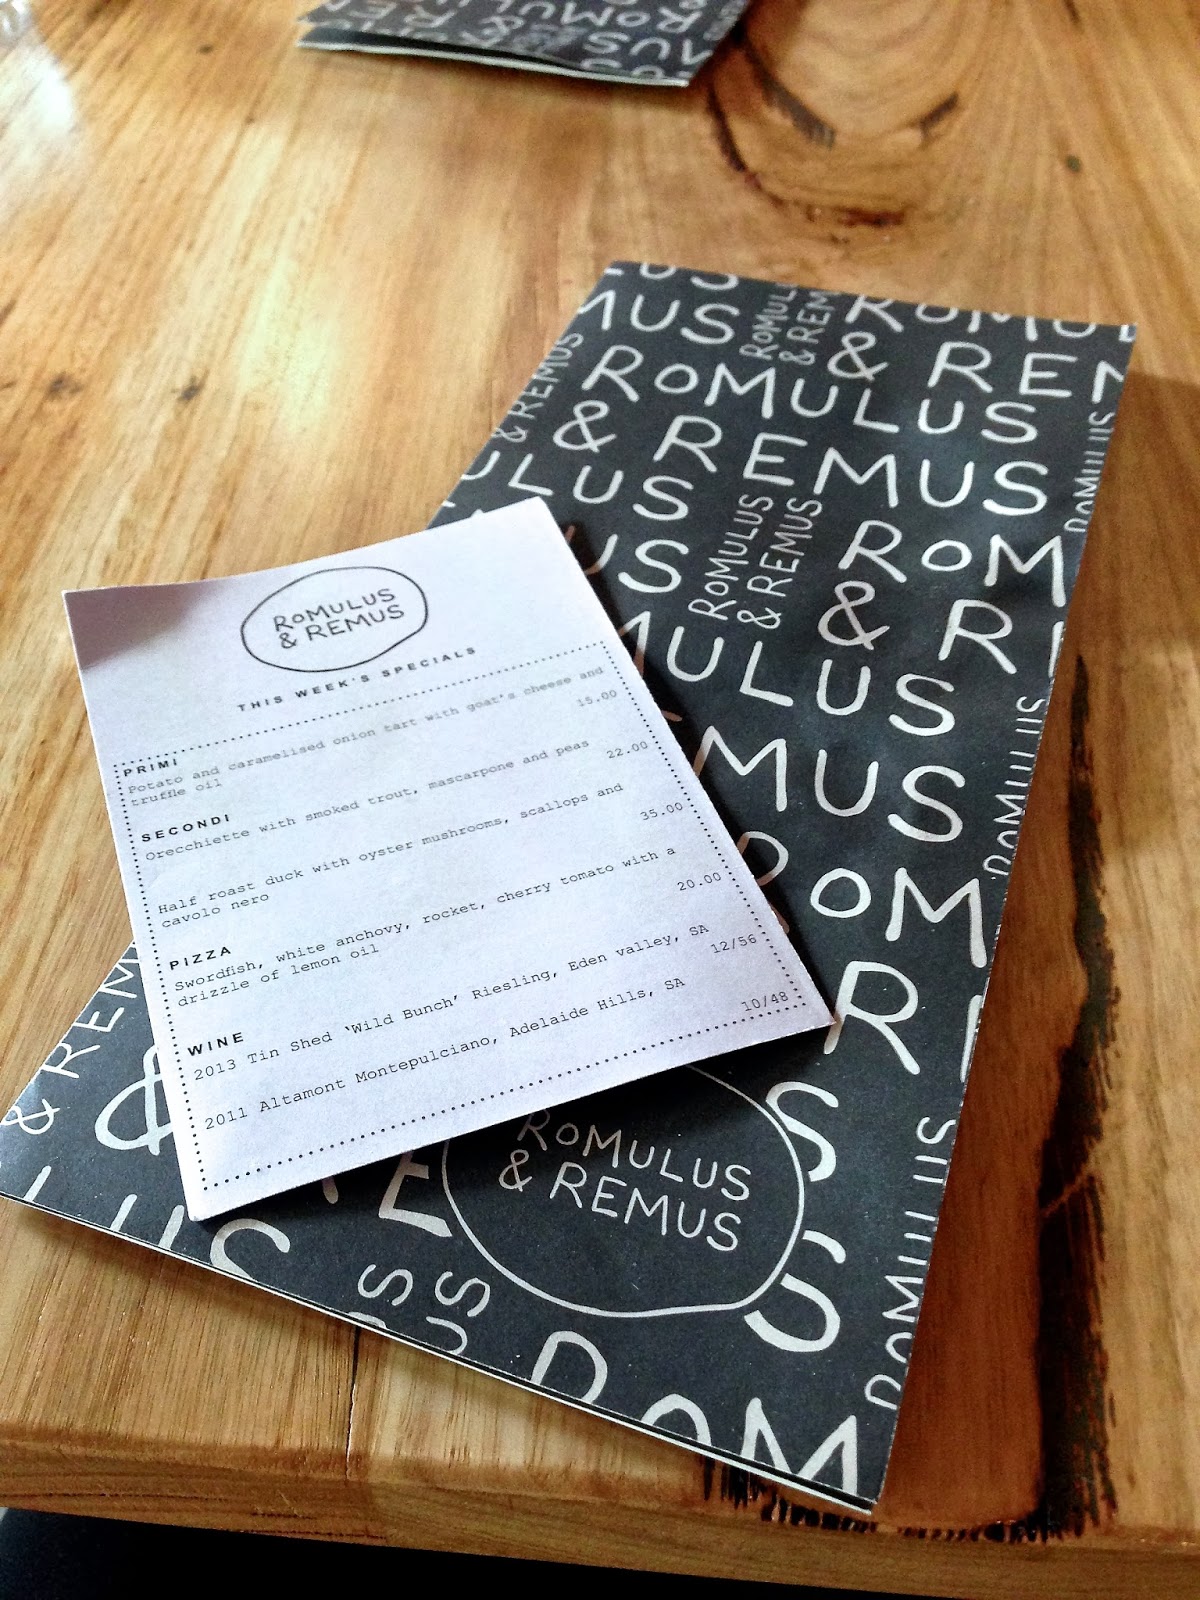 ROMULUS
& REMUS
THIS WEEK'S SPECIALS
PRIMI
Potato and caramelised onion tart with goat's cheese and
truffle oil
15.00
SECONDI
Orecchiette with smoked trout, mascarpone and peas
22.00
Half roast duck with oyster mushrooms, scallops and
cavolo nero
35.00
PIZZA
Swordfish, white anchovy, rocket, cherry tomato with a
drizzle of lemon oil
20.00
WINE
2013 Tin Shed 'Wild Bunch' Riesling, Eden valley, SA
12/56
2011 Altamont Montepulciano, Adelaide Hills, SA
10/48
ROMULUS
& REMUS
ROMULUS
& REMUS
ROMULUS
& REMUS
ROMULUS
& REMUS
ROMULUS
ROMULUS
ROMULUS